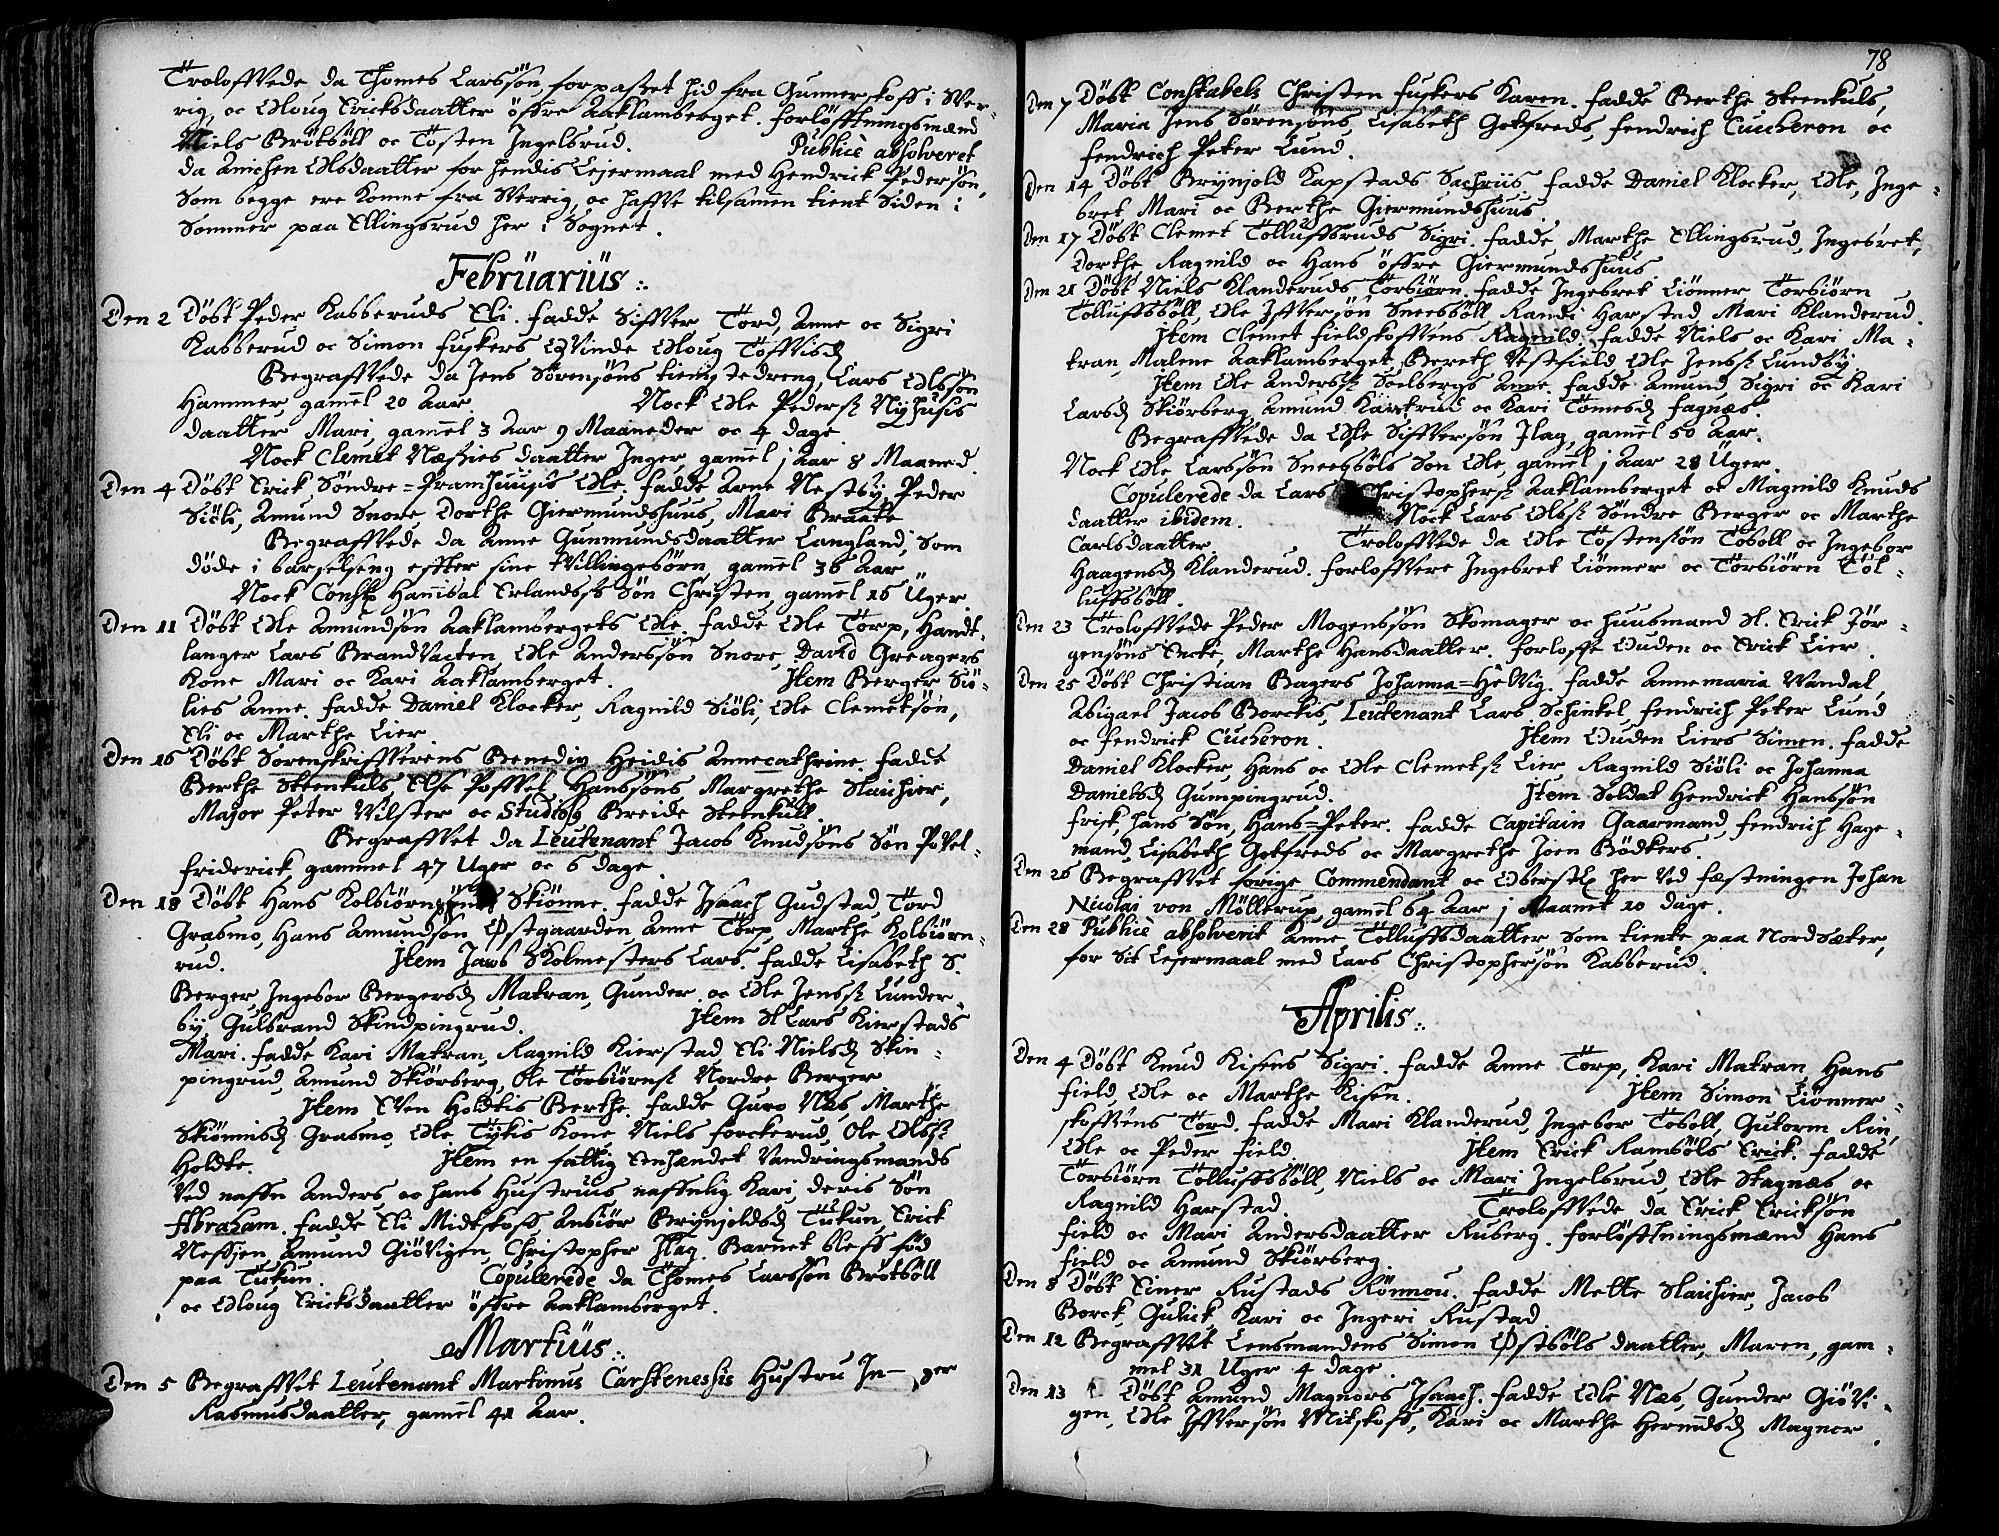 Troloffvede da Thomes Larssøn, forpasset hid fra Gunnerskoff i Sver-
rig, oc Oloug Ericksdaatter öffre Aaklamberget. forlöfftningsmænd
Niels Brötsöll oc Tösten Ingelsrud. Publicè absolveret
da Anichen Olsdaatter for hendis Lejermaal med Hendrick Pedersøn,
Som begge ere komne fra Sverrig, oc haffve tilsamen tient Siden i
Sommer paa Ellingsrud her i Sognet.
Februarius
Den 2 Döbt Peder Kabberuds Eli. fadde Siffver, Tord, Anne oc Sigri
Kabberud oc Simon fuskers Qvinde Oloug Töffvisd
Begraffvede da Jens Sørensøns tieniste dreng, Lars Olssøn
Hammer, gamel 20 Aar. Nock Ole Peders: Nyhusis
daatter Mari gamel 3 Aar 9 Maaneder oc 4 dage.
Nock Clemet Næssies daatter Inger gamel j Aar 8 Maaned.
Den 4 Döbt Erick Söndre=Pramhuusis Ole. fadde Arne Nestby, Peder
Siöli, Amund Snore Dorthe Giermundshuus, Mari Braate
Begraffvede da Anne Gunmundsdaatter Langland, Som
döde i barselseng effter sine tvillingebörn, gamel 36 Aar
Nock Const: Hanibal Erlandss: Søn Christen, gamel 16 Uger
Den 11 Döbt Ole Amundsøn Aaklambergets Ole. fadde Ole Torp, Handt-
langer Lars Brandvacten, Ole Anderssøn Snore, David Greagers
Kone Mari oc Kari Aaklamberget. Item Berger Siö-
lies Anne. fadde Daniel Klocker, Ragnild Siöli, Ole Clemetsøn,
Eli oc Marthe Lier.
Den 16 Döbt Sorenskriffverens Benedix Heidis Annecathrine. fadde
Berthe Steenkuls, Else Poffvel Hanssöns Margrethe Slaichier,
Major Peter Vilster oc Studios: Breide Steenkull.
Begraffvet da Leutenant Jacob Knudsöns Søn Povel-
friderick, gammel 47 Uger oc 6 dage.
Den 18 Döbt Hans Kolbiörn Skiönne. fadde Isaach Gudstad, Tord
Grasmo, Hans Amundsøn Østgaarden Anne Torp, Marthe Kolbiörn-
rud. Item Jacob Skolmesters Lars. fadde Lisabeth S.
Berger, Ingebor Bergersd Matran, Gunder oc Ole Jenss: Lunder-
by, Gulbrand Skindpingrud. Item S Lars Kierstads
Mari. fadde Kari Matran, Ragnild Kierstad, Eli Nielsd Skin-
pingrud, Amund Skiörberg, Ole Torbiörns: Nordre Berger
Item Even Holdtis Berthe. fadde Guro Næs, Marthe
Skiönnisd Grasmo, Ole Tykis Kone Niels forckerud, Ole Olss:
Holdte. Item en fattig Eenhændet Vandringsmands
Ved naffn Anders, oc hans Hustruis naffnlig Kari deris Søn
Abraham. fadde Eli Midtskoff, Anbiør Brynjoldsd Tukun, Erick
Neffsjen, Amund Giövigen, Christopher Flag. Barnet bleff föd
paa Tukun. Copulerede da Thomes Larssøn Brötsöll
oc Oloug Ericksdaatter öffre Aaklamberget.
Martius
Den 5 Begraffvet Leutenant Martinus Carstenssis Hustru In- ger
Rasmusdaatter, gamel 41 Aar.
78
Den 7 Döbt Constabels Christen fuskers Karen. fadde Berthe Steenkuls,
Maria Jens Sörensöns Lisabeth Gotfreds, fendrich Cuccheron oc
fendrich Peter Lund.
Den 14 Döbt Brynjold Kapstads Sachriis. fadde Daniel Klocker, Ole, Inge-
bret Mari oc Berthe Giermundshuus.
Den 17 Döbt Clemet Tolluffsruds Sigri. fadde Marthe Ellingsrud, Ingebret,
Dorthe Ragnild oc Hans öffre Giermundshuus
Den 21 Döbt Niels Klanderuds Torbiörn. fadde Ingebret Liönner Torbiörn
Tolluffsböll, Ole Iffversøn Sneesböll Randi Harstad, Mari Klanderud.
Item Clemet Fieldskoffvens Ragnild. fadde Niels oc Kari Ma-
tran, Malene Aaklamberget, Bereth Vestfield, Ole Jenss: Lundby
Item Ole Anderss: Soelbergs Anne. fadde Amund Sigri oc Kari
Larsd Skiörberg, Amund Kürstrud oc Kari Tomesd fagnæs.
Begraffvede da Ole Siffversøn Flag, gamel 50 Aar.
Nock Ole Larssøn Sneesböls Søn Ole, gamel j Aar 28 Uger.
Copulerede da Lars Christophers: Aaklamberget oc Magnild Knuds
daatter ibidem. Nock Lars Olss: Söndre Berger oc Marthe
Carlsdaatter. Troloffvede da Ole Töstensøn Tobøll oc Ingebor
Haagensd Klanderud. forloffvere Ingebret Liönner oc Torbiörn Tol-
luffsböll.
Den 23 Troloffvede Peder Mogenssøn Skomager oc huusmand Sl. Erick Jör-
gensöns Encke, Marthe Hansdaatter. forloffe Ouden oc Erick Lier.
Den 25 Döbt Christian Bagers Johanna=Helvig. fadde Annemaria Vandal,
Abigael Jacob Borckis, Leutenant Lars Schinkel, fendrich Peter Lund
oc fendrick Cucheron. Item Ouden Liers Simen. fadde
Daniel Klocker, Hans oc Ole Clemets: Lier, Ragnild Siöli oc Johanna
Danielsd Gumpingrud. Item Soldat Hendrick Hanssøn
frisk, hans Søn, Hans=Peter. fadde Capitain Gaarmand, fendrich Hage-
mand, Lisabeth Gotfreds oc Margrethe Joen Bödkers.
Den 26 Begraffvet forige Commendant oc Oberst: her ved festningen Johan
Nicolai von Möllerup, gamel 64 Aar j Maanet 20 dage.
Den 28 Publicè absolverit Anne Tolluffsdaatter Som tiente paa Nord Sæter,
for Sit Lejermaal med Lars Christophersøn Kabberud.
Aprilis
Den 4 Döbt Knud Risens Sigri. fadde Anne Torp, Kari Matran, Hans
field, Ole oc Marthe Risen. Item Simon Liönner-
skoffvens Tord. fadde Mari Klanderud, Ingebor Toböll, Gutorm Rin,
Ole oc Peder field. Item Erick Ramsöls Erick. fadde
Torbiörn Tolluffsböll, Niels oc Mari Ingelsrud, Ole Stagnæs oc
Ragnild Harstad. Troloffvede da Erick Ericksøn
field oc Mari Andersdaatter Ruberg. forlöfftningsmænd Hans
field oc Amund Skiörberg.
Den 8 Döbt Einer Rustads Rönnou. fadde Mette Slaichier, Jacob
Borck, Gulick Kari oc Ingeri Rustad.
Den 12 Begraffvet Lensmandens Simen Østböls daatter, Maren, gam-
mel 31 Uger 4 dage.
Den 13 Döbt Amund Magnors Isaach. fadde Ole Næs, Gunder Giövi-
gen, Ole Iffversøn Mitskoff, Kari oc Marthe Hermansd Magnor.